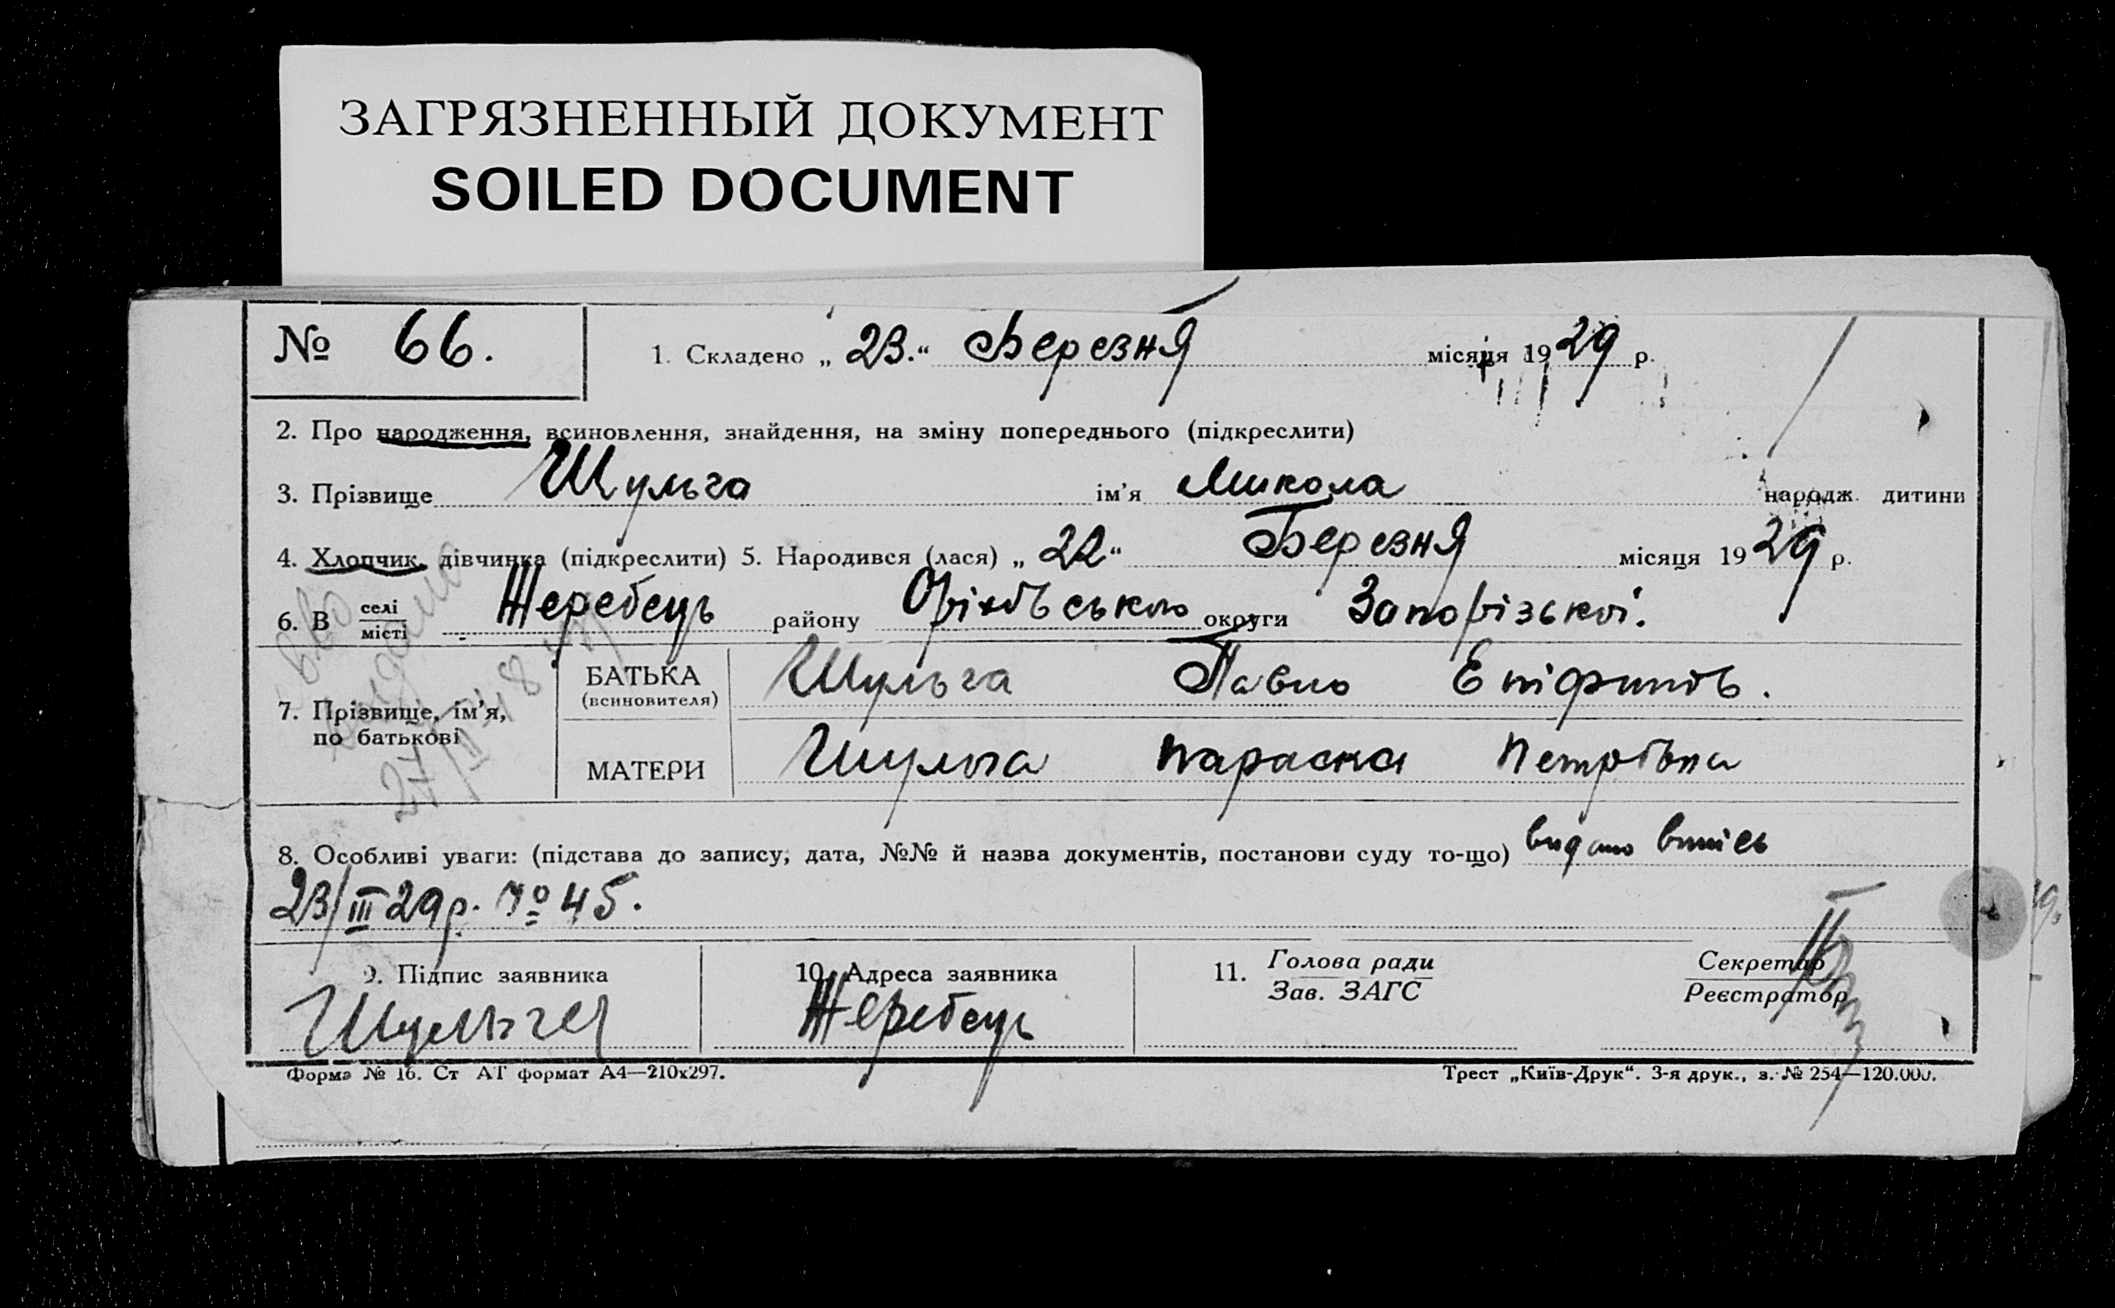 ЗАГРЯЗНЕННЫЙ ДОКУМЕНТ
SOILED DOCUMENT
№ 66.
1. Складено „ 23.“ Березня місяця 1929 р.
2. Про народження, всиновлення, знайдення, на зміну попереднього (підкреслити)
3. Прізвище Шульга ім’я Микола народж. дитини
4. Хлопчик, дівчинка (підкреслити) 5. Народився (лася) „ 22“ Березня місяця 1929 р.
6. В селі місті Жеребець району Оріхівського округи Запорізької.
7. Прізвище, ім’я, по батькові
БАТЬКА (всиновителя) Шульга Павло
МАТЕРИ Шульга Параска Петрівна
8. Особливі уваги: (підстава до запису, дата, №№ й назва документів, постанови суду то-що) видано випись
23/III 29 р. № 45.
9. Підпис заявника
Шульга
10. Адреса заявника
Жеребець
11. Голова ради
Зав. ЗАГС
Секретар
Реєстратор
Форма № 16. Ст АТ формат А4—210х297.
Трест „Київ-Друк“. 3-я друк., з. № 254—120.000.